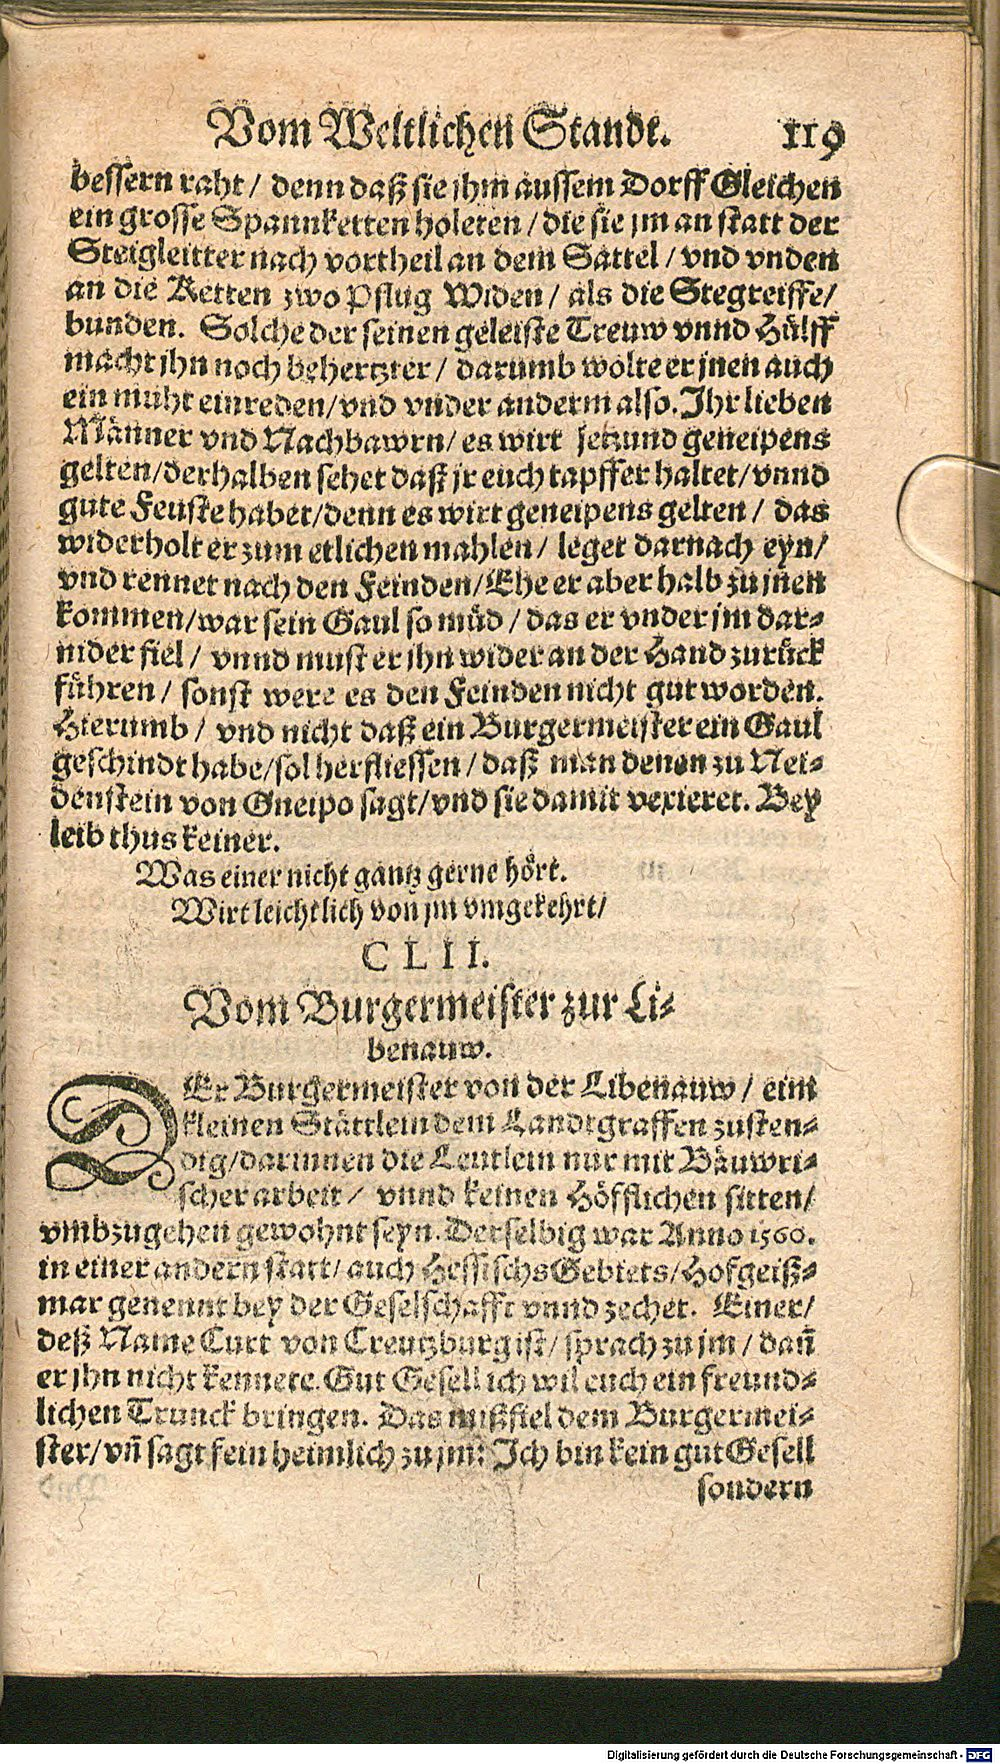 Vom Weltlichen Stande. 119
bessern raht/ denn daß sie ihm aussem Dorff Gleichen
ein grosse Spannketten holeten/ die sie jm an statt der
Steigleitter nach vortheil an dem Sattel/ vnd vnden
an die Ketten zwo Pflug Widen/ als die Stegreiffe/
bunden. Solche der seinen geleiste Treuw vnnd Hülff
macht jhn noch behertzter/ darumb wolte er jnen auch
ein muht einreden/ vnd vnder anderm also. Ihr lieben
Männer vnd Nachbawrn/ es wirt jetzund geneipens
gelten/ derhalben sehet daß jr euch tapffer haltet/ vnnd
gute Feuste habet/ denn es wirt geneipens gelten/ das
widerholt er zum etlichen mahlen/ leget darnach eyn/
vnd rennet nach den Feinden/ Ehe er aber halb zu jnen
kommen/ war sein Gaul so müd/ das er vnder jm dar-
nider fiel/ vnnd must er jhn wider an der Hand zurück
führen/ sonst were es den Feinden nicht gut worden.
Hierumb/ vnd nicht daß ein Burgermeister ein Gaul
geschindt habe/ sol herfliessen/ daß man denen zu Nei-
denstein von Gneipo sagt/ vnd sie damit vexieret. Bey
leib thus keiner.
Was einer nicht gantz gerne hört.
Wirt leichtlich von jm vmgekehrt/
CLII.
Vom Burgermeister zur Li-
benauw.
DEr Burgermeister von der Libenauw/ eim
kleinen Stättlein dem Landtgraffen zusten-
dig/ darinnen die Leutlein nur mit Bäuwri-
scher arbeit/ vnnd keinen Höfflichen sitten/
vmbzugehen gewohnt seyn. Derselbig war Anno 1560.
in einer andern statt/ auch Hessischs Gebiets/ Hofgeiß-
mar genennt bey der Geselschafft vnnd zechet. Einer/
deß Name Curt von Creutzburg ist/ sprach zu jm/ dañ
er jhn nicht kennete. Gut Gesell ich wil euch ein freund-
lichen Trunck bringen. Das mißfiel dem Burgermei-
ster/ vñ sagt fein heimlich zu jm: Ich bin kein gut Gesell
sondern
Digitalisierung gefördert durch die Deutsche Forschungsgemeinschaft - DFG